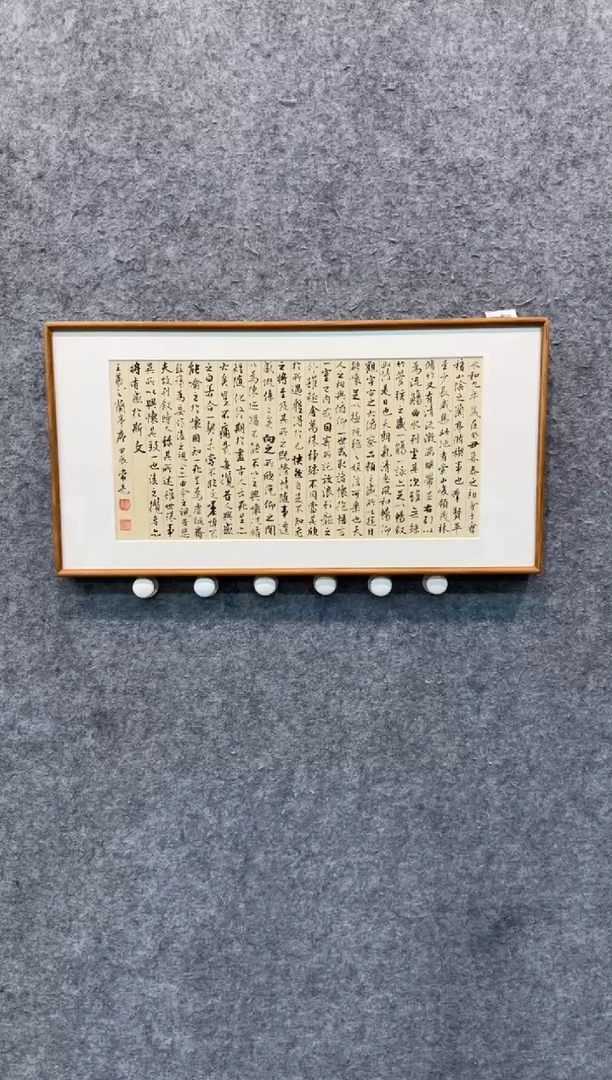 永和九年歲在癸丑暮春之初會于會
稽山陰之蘭亭脩稧事也羣賢畢
至少長咸集此地有崇山峻領茂林
脩竹又有清流激湍暎帶左右引以
為流觴曲水列坐其次雖無絲
竹管弦之盛一觴一詠亦足以暢叙
幽情是日也天朗氣清惠風和暢仰
觀宇宙之大俯察品類之盛所以遊目
騁懷足以極視聽之娛信可樂也夫
人之相與俯仰一世或取諸懷抱悟言
一室之內或因寄所託放浪形骸之
外雖趣舍萬殊靜躁不同當其欣
於所遇暫得於己快然自足不知老
之將至及其所之既惓情隨事遷
感慨係之矣向之所欣俛仰之間
以為陳迹猶不能不以之興懷況脩
短隨化終期於盡古人云死生亦
大矣豈不痛哉每攬昔人興感
之由若合一契未嘗不臨文嗟悼不
能喻之於懷固知一死生為虛誕齊
彭殤為妄作後之視今亦由今之視昔悲
夫故列叙時人錄其所述雖世殊事
異所以興懷其致一也後之攬者亦
將有感於斯文
王羲之蘭亭序 甲辰